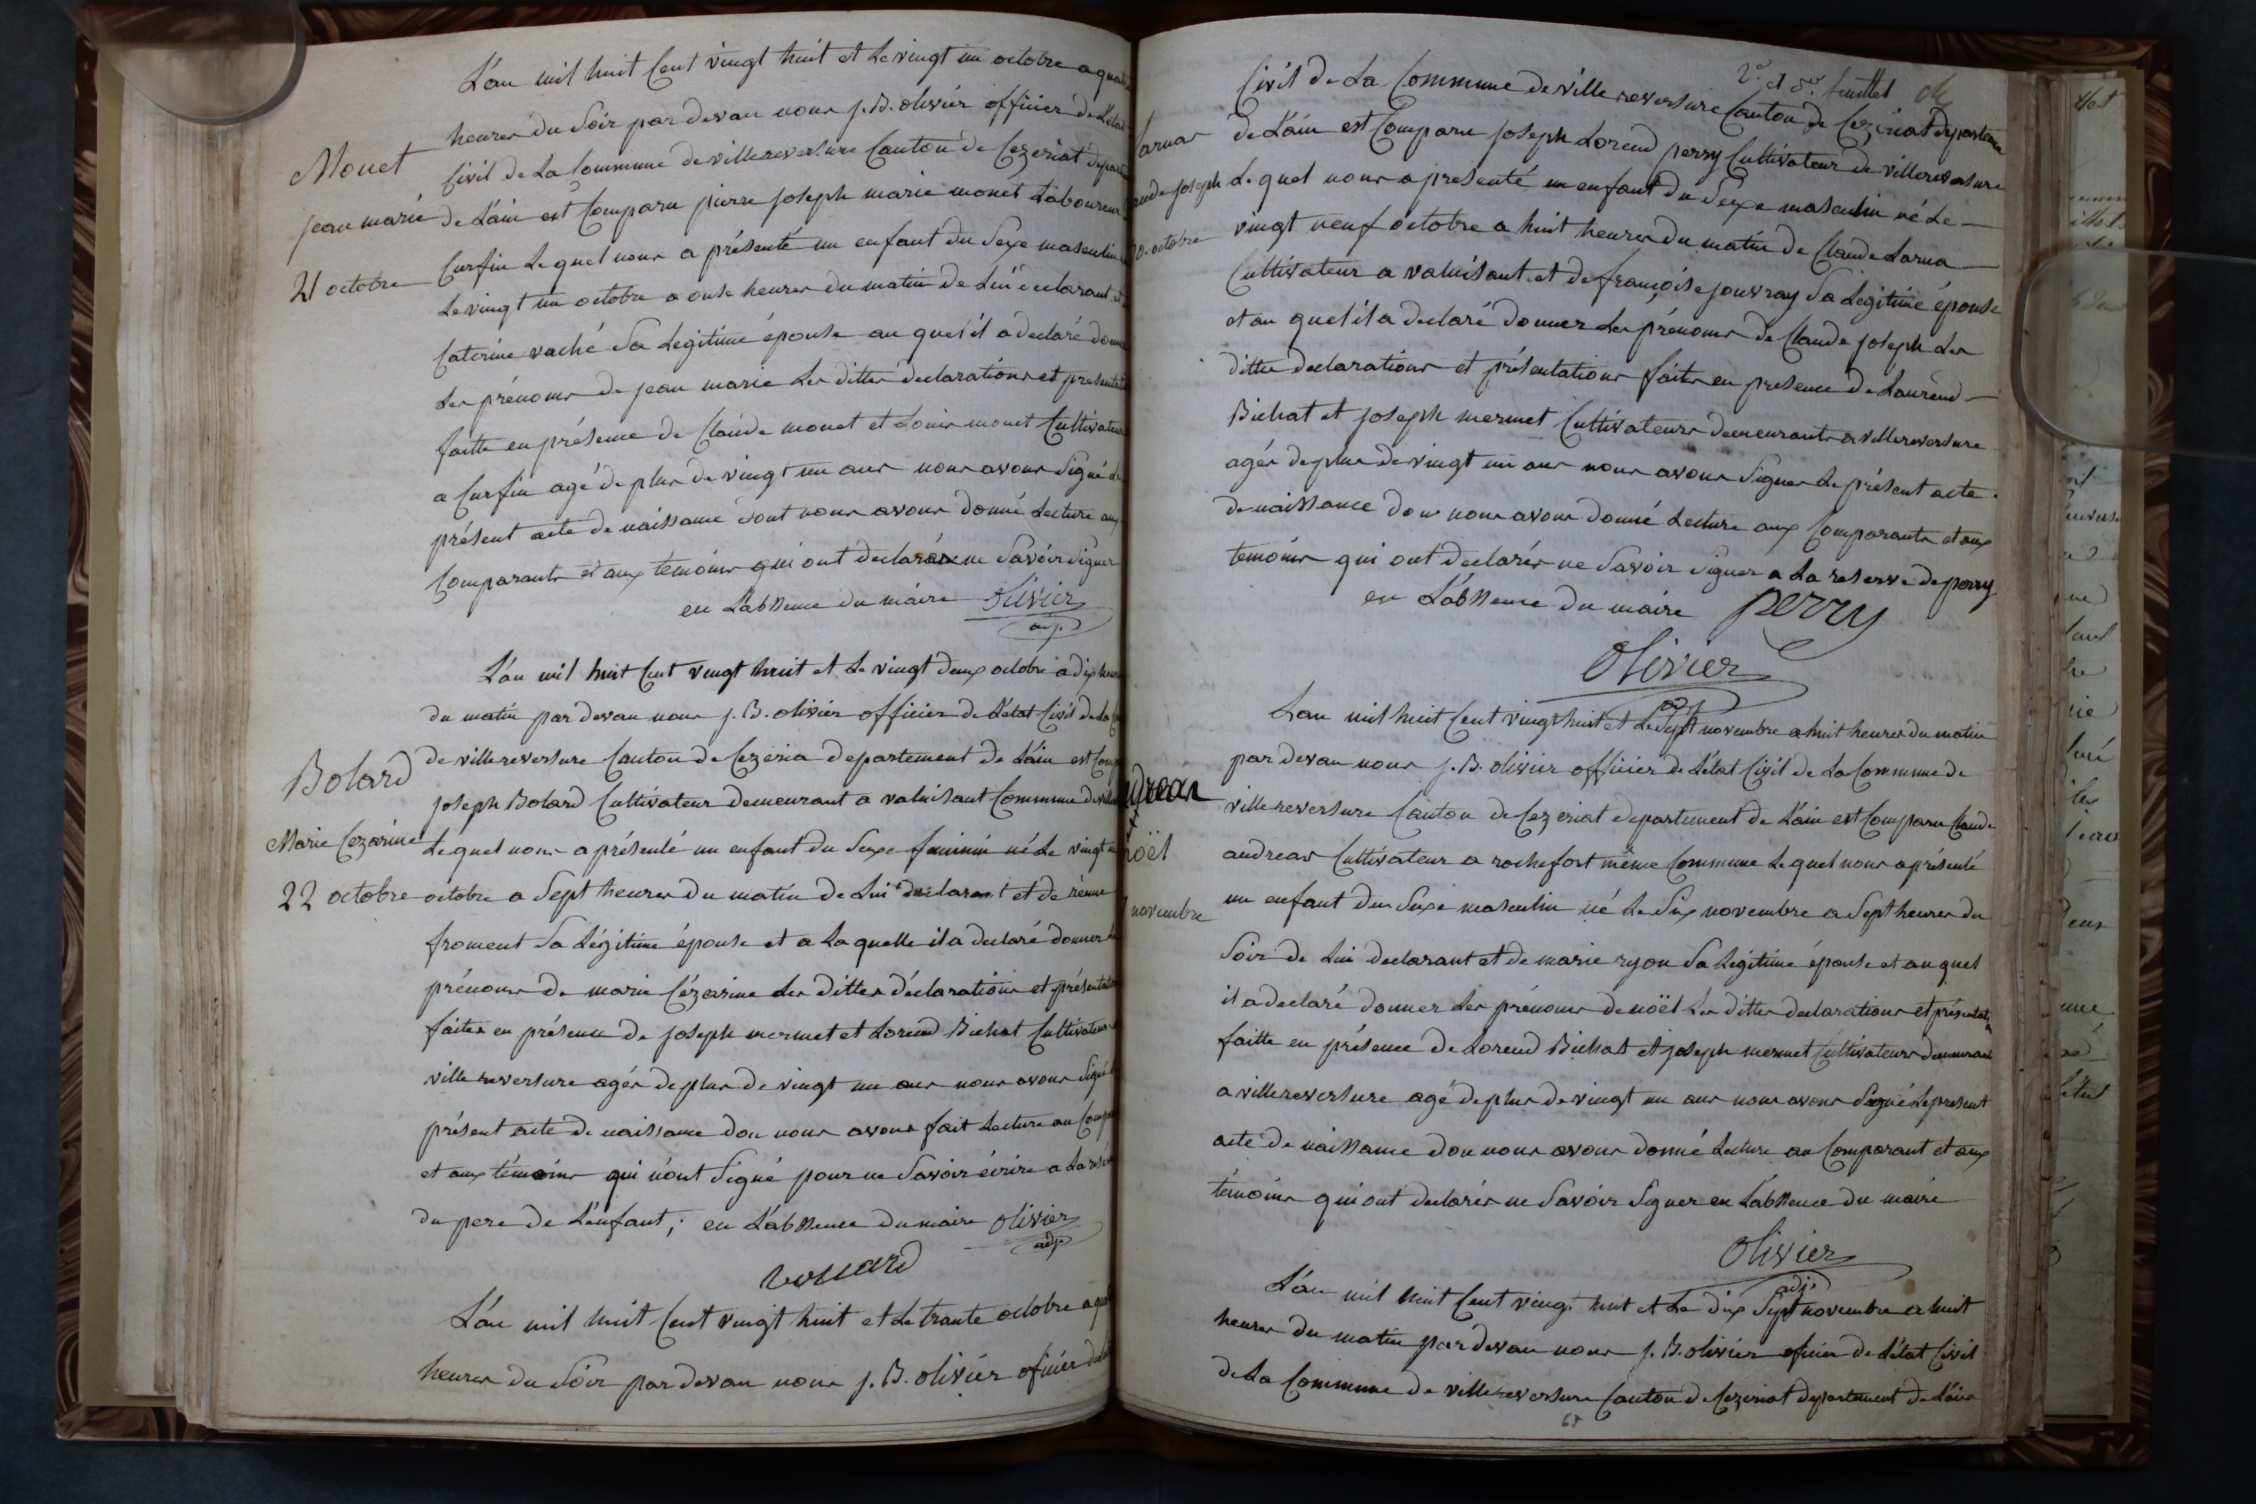 L'an mil huit Cent vingt huit et Le vingt un octobre a quat
heures du Soir par devan nous j. B. olivier officier de L'état
Monet
Civil de La Commune de villereversure Canton de Cezeriat depart
jean marie
de L'ain est Comparu pierre joseph marie monet Laboureur
21 octobre
Curfin Le quel nous a présenté un enfant du Sexe masculin
Le vingt un octobre a onse heures du matin de Lui declarant et
Caterine vaché Sa Legitime épouse au quel il a declaré donn
Les prénoms de jean marie Les dittes declarations et presentat
faitte en présence de Claude monet et Louis monet Cultivateur
a Curfin agé de plus de vingt un ans nous avons Signé Le
présent acte de naissance dont nous avons donné Lecture aux
Comparants et aux temoins qui ont declarés ne Savoir Signer
en L'abssence du maire olivier
adj.
L'an mil huit Cent vingt huit et Le vingt deux octobre a dix heur
du matin par devan nous j. B. olivier officier de L'état Civil de La
de villereversure Canton de Cezeria departement de L'ain est Comp
Bolard
joseph Bolard Cultivateur demeurant a valuisant Commune de ville
Marie Cezarine
Le quel nous a présenté un enfant du Sexe feminin né Le vingt
22 octobre
octobre a Sept heures du matin de Lui declarant et de
froment Sa Légitime épouse et a La quelle il a declaré donner
prénoms de marie Cézarine Les dittes déclarations et présentat
faites en présence de joseph mermet et Lorend Bichat Cultivateurs
villereversure agés de plus de vingt un ans nous avons Signé
présent acte de naissance don nous avons fait Lecture au Comp
et aux témoins qui n'ont Signé pour ne Savoir écrire a La rés
du pere de L'enfant; en L'abssence du maire olivier
adj.
L'an mil huit Cent vingt huit et Le trante octobre a qua
heures du Soir par devan nous j. B. olivier oficier de
2e et der feuillet
Civil de La Commune de villereversure Canton de Cezeriat departem
Larnas
de L'ain est Comparu joseph Lorend perry Cultivateur de villereversure
joseph
Le quel nous a presenté un enfant du Sexe masculin né Le
octobre
vingt neuf octobre a huit heures du matin de Claude Larna
Cultivateur a valuisant et de françoise jouvray Sa Legitime épouse
et au quel il a declaré donner Les prénoms de Claude joseph Les
dittes declarations et présentations faites en presence de Laurend
Bichat et joseph mermet Cultivateurs demeurants a villereversure
agés de plus de vingt un ans nous avons Signer Le présent acte
de naissance don nous avons donné Lecture aux Comparants et aux
temoins qui ont declarés ne Savoir Signer a La reserve de perry
en L'abssence du maire perry
olivier
adj.
L'an mil huit Cent vingt huit et Le Sept novembre a huit heures du matin
par devan nous j. B. olivier officier de L'état Civil de La Commune de
villereversure Canton de Cezeriat departement de L'ain est Comparu Claude
andreas Cultivateur a rochefort même Commune Le quel nous a présenté
noël
un enfant du Sexe masculin né Le Six novembre a Sept heures du
novembre
Soir de Lui declarant et de marie ryon Sa Legitime épouse et au quel
il a declaré donner Les prénoms de noël Les dittes declarations et présentat
faitte en présence de Lorend Bichat et joseph mermet Cultivateurs demeurant
a villereversure agé de plus de vingt un ans nous avons Signé Le present
acte de naissance don nous avons donné Lecture au Comparant et aux
témoins qui ont declarés ne Savoir Signer en L'abssence du maire
olivier
adj.
L'an mil huit Cent vingt huit et Le dix Sept novembre a huit
heures du matin par devan nous j. B. olivier oficier de L'état Civil
de La Commune de villereversure Canton de Cezeriat departement de L'ain